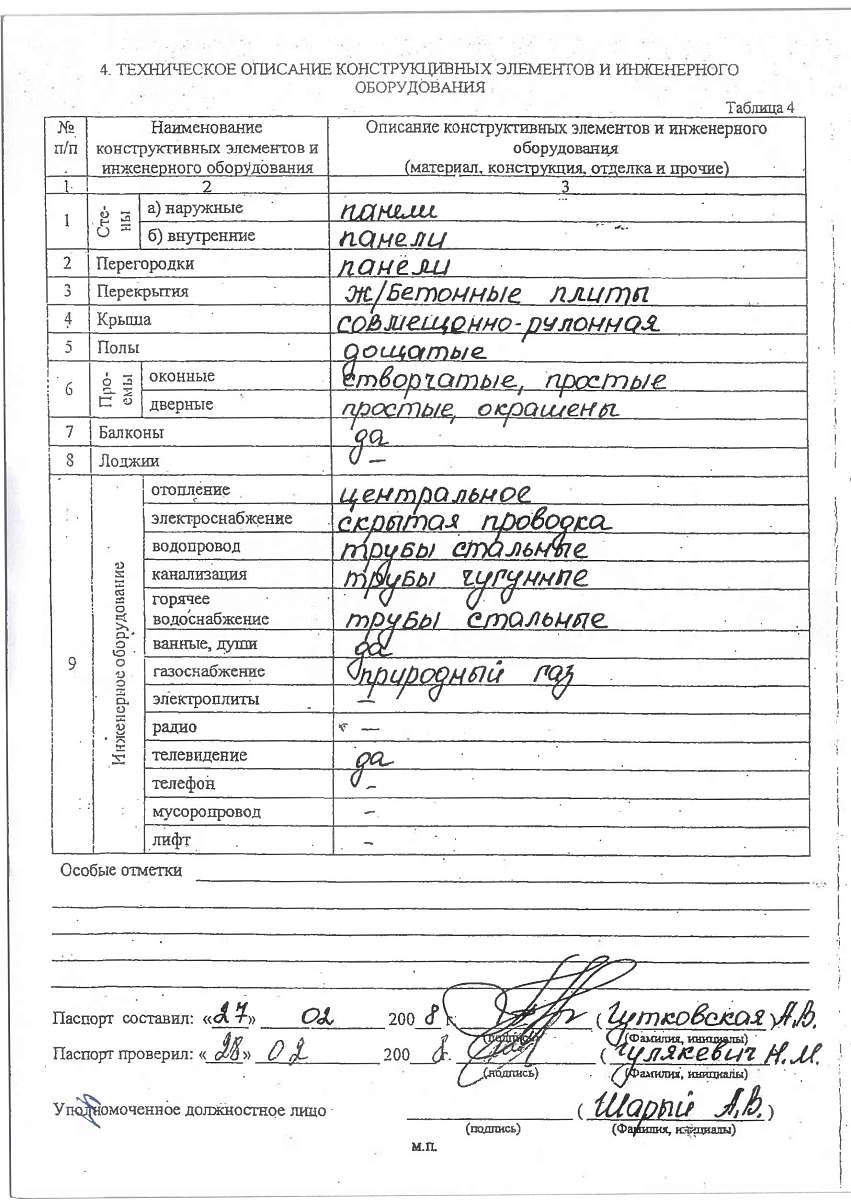 4. ТЕХНИЧЕСКОЕ ОПИСАНИЕ КОНСТРУКЦИВНЫХ ЭЛЕМЕНТОВ И ИНЖЕНЕРНОГО
ОБОРУДОВАНИЯ
Таблица 4
№ п/п Наименование конструктивных элементов и инженерного оборудования Описание конструктивных элементов и инженерного оборудования (материал, конструкция, отделка и прочие)
1 2 3
1 Сте-ны а) наружные панели
б) внутренние панели
2 Перегородки панели
3 Перекрытия ж/бетонные плиты
4 Крыша совмещенно-рулонная
5 Полы дощатые
6 Про-емы оконные створчатые, простые
дверные простые, окрашены
7 Балконы да
8 Лоджии –
9 Инженерное оборудование отопление центральное
электроснабжение скрытая проводка
водопровод трубы стальные
канализация трубы чугунные
горячее
водоснабжение трубы стальные
ванные, души да
газоснабжение природный газ
электроплиты –
радио –
телевидение да
телефон –
мусоропровод –
лифт –
Особые отметки
Паспорт составил: «27» 02 2008 г. (Гутковская А.В.
(подпись) (Фамилия, инициалы)
Паспорт проверил: «28» 02 2008 г. (Гулякевич Н.М.
(подпись) (Фамилия, инициалы)
Уполномоченное должностное лицо (Шарый А.В.)
(подпись) (Фамилия, инициалы)
м.п.